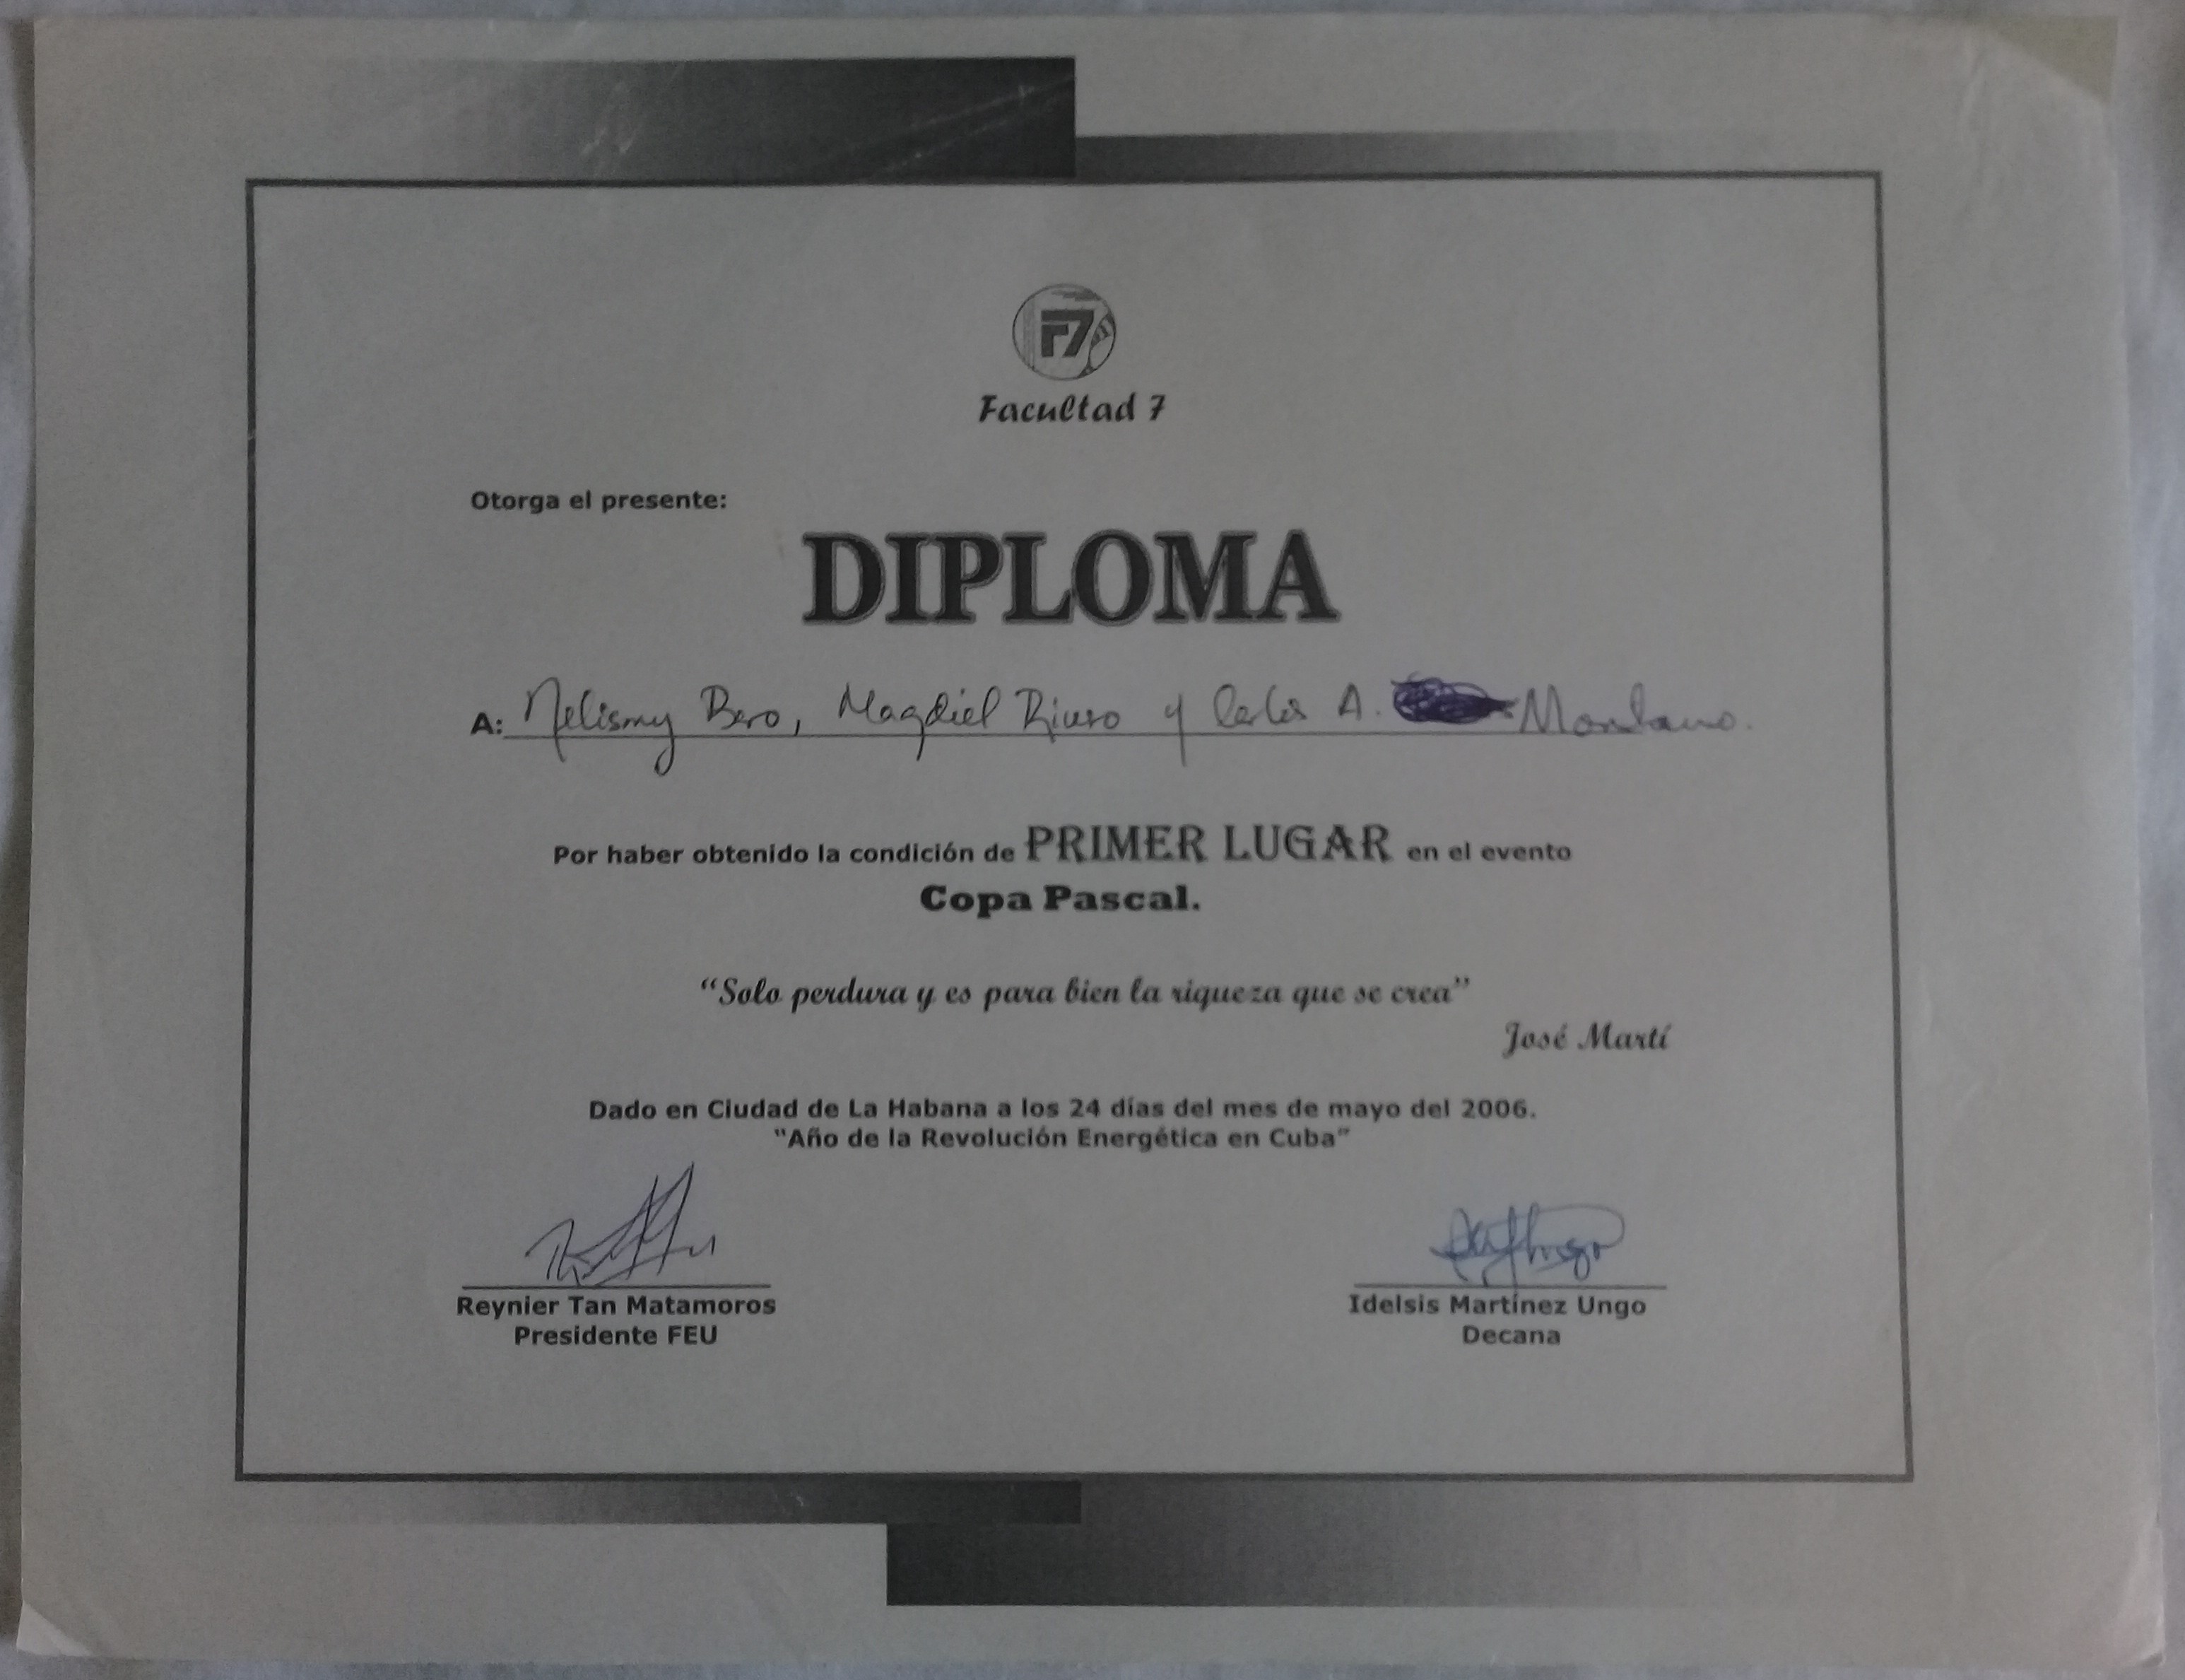 F7
Facultad 7
Otorga el presente:
DIPLOMA
A: Nelismy Bero, Magdiel Rivero y Carlos A. Montano.
Por haber obtenido la condición de PRIMER LUGAR en el evento
Copa Pascal.
“Solo perdura y es para bien la riqueza que se crea”
José Martí
Dado en Ciudad de La Habana a los 24 días del mes de mayo del 2006.
“Año de la Revolución Energética en Cuba”
Reynier Tan Matamoros
Presidente FEU
Idelsis Martínez Ungo
Decana